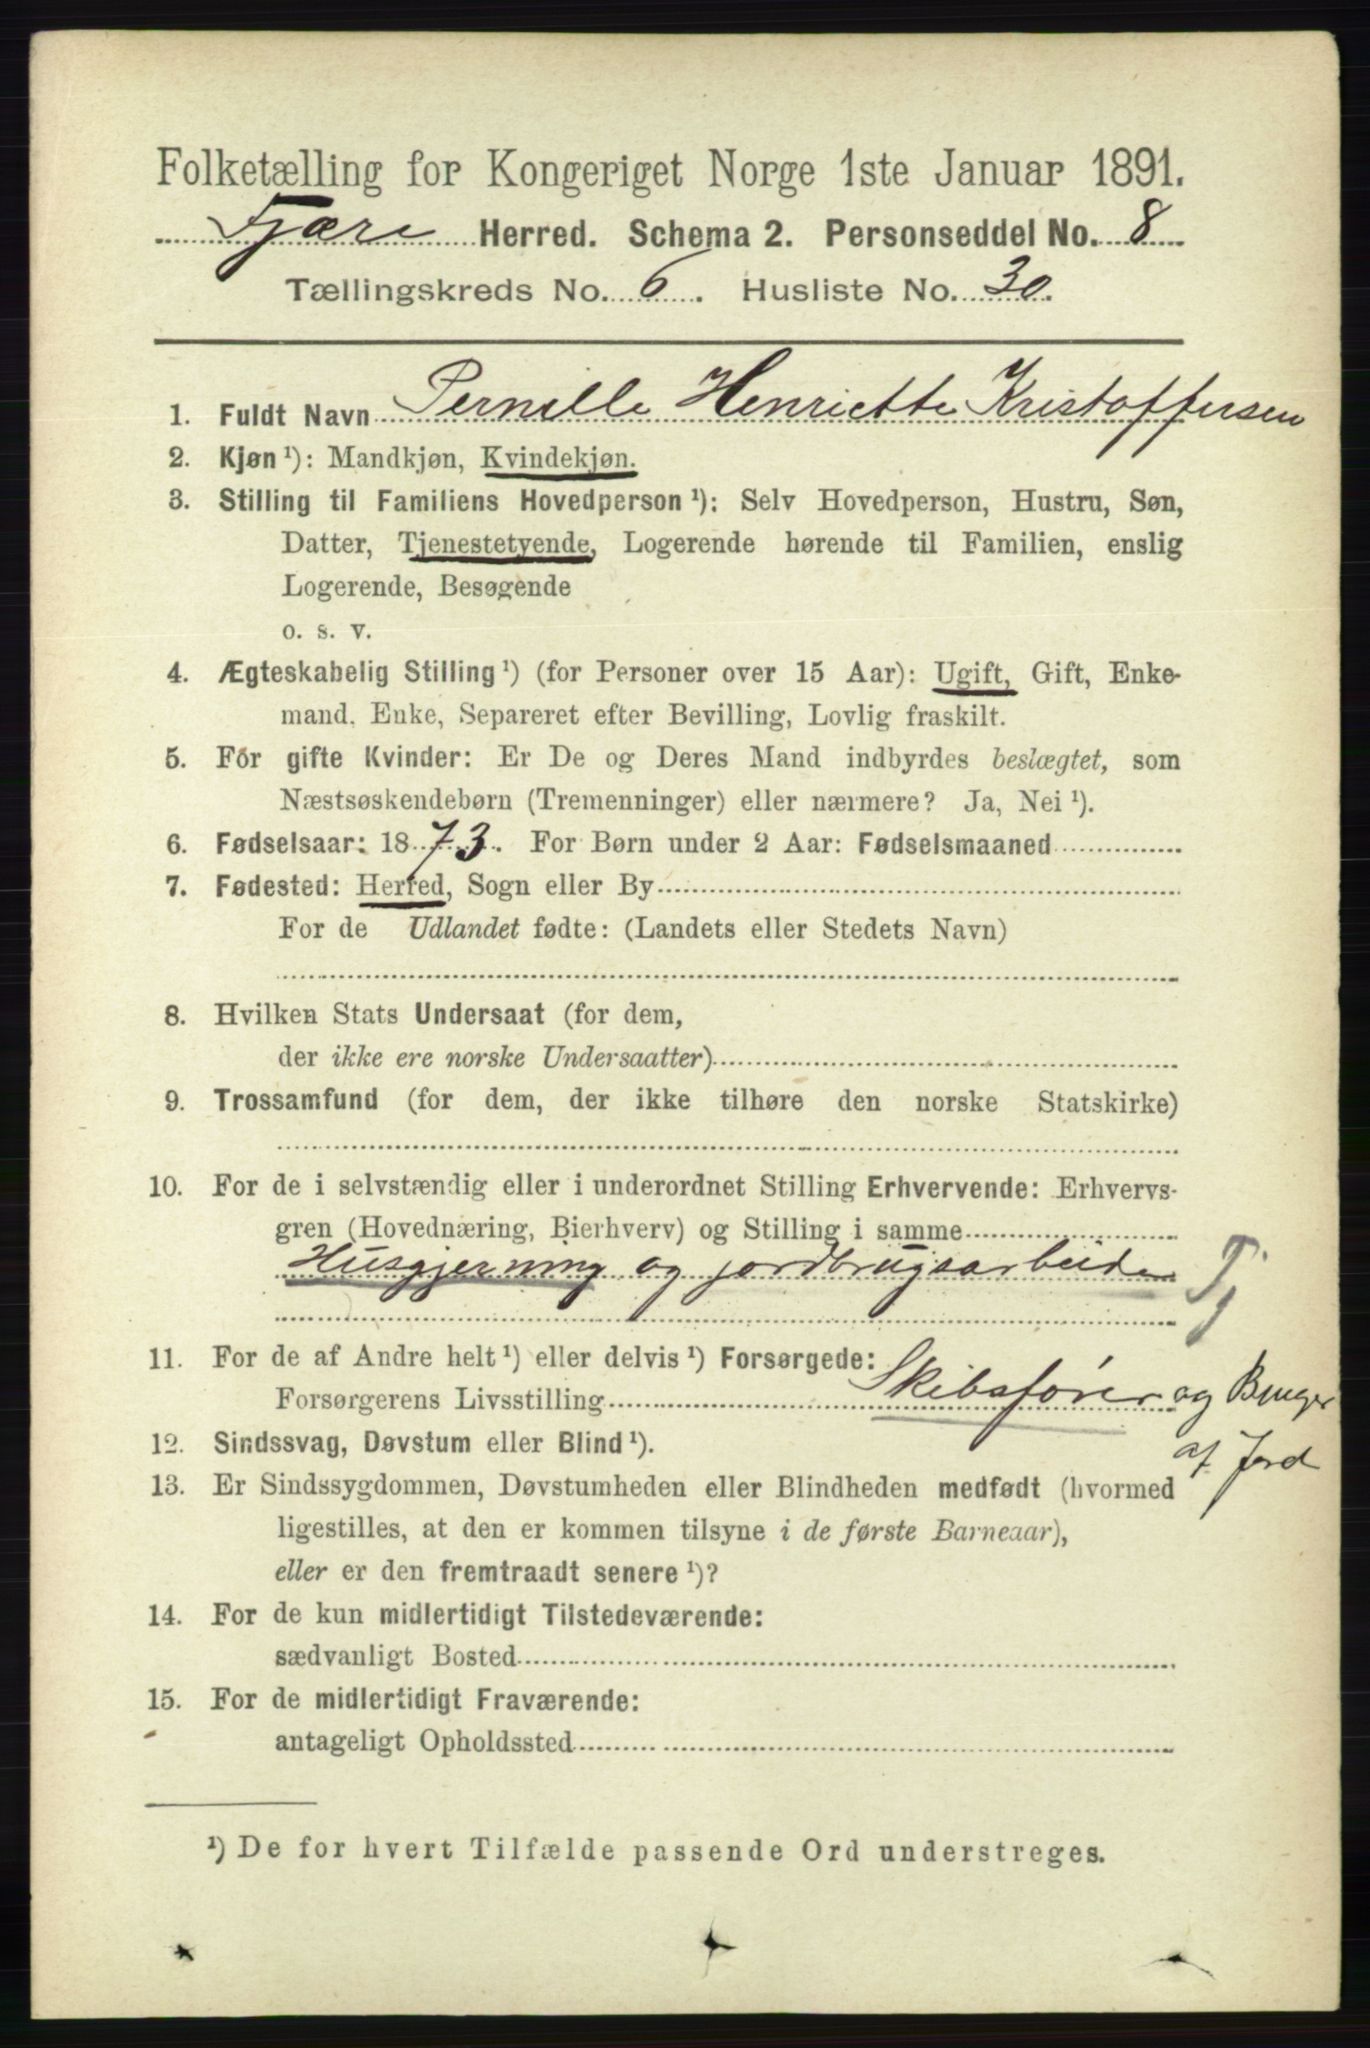 Folketælling for Kongeriget Norge 1ste Januar 1891.
Fjære Herred. Schema 2. Personseddel No. 8
Tællingskreds No. 6. Husliste No. 30.
1. Fuldt Navn Pernille Henriette Kristoffersen
2. Kjøn ¹): Mandkjøn, Kvindekjøn.
3. Stilling til Familiens Hovedperson ¹): Selv Hovedperson, Hustru, Søn,
Datter, Tjenestetyende, Logerende hørende til Familien, enslig
Logerende, Besøgende
o. s. v.
4. Ægteskabelig Stilling ¹) (for Personer over 15 Aar): Ugift, Gift, Enke-
mand, Enke, Separeret efter Bevilling, Lovlig fraskilt.
5. For gifte Kvinder: Er De og Deres Mand indbyrdes beslægtet, som
Næstsøskendebørn (Tremenninger) eller nærmere? Ja, Nei ¹).
6. Fødselsaar: 1873. For Børn under 2 Aar: Fødselsmaaned
7. Fødested: Herred, Sogn eller By
For de Udlandet fødte: (Landets eller Stedets Navn)
8. Hvilken Stats Undersaat (for dem,
der ikke ere norske Undersaatter)
9. Trossamfund (for dem, der ikke tilhøre den norske Statskirke)
10. For de i selvstændig eller i underordnet Stilling Erhvervende: Erhvervs-
gren (Hovednæring, Bierhverv) og Stilling i samme
Husgjerning og jordbrugsarbeide
Tj
11. For de af Andre helt ¹) eller delvis ¹) Forsørgede:
Forsørgerens Livsstilling Skibsfører og Bruger
af Jord
12. Sindssvag, Døvstum eller Blind ¹).
13. Er Sindssygdommen, Døvstumheden eller Blindheden medfødt (hvormed
ligestilles, at den er kommen tilsyne i de første Barneaar),
eller er den fremtraadt senere ¹)?
14. For de kun midlertidigt Tilstedeværende:
sædvanligt Bosted
15. For de midlertidigt Fraværende:
antageligt Opholdssted
¹) De for hvert Tilfælde passende Ord understreges.